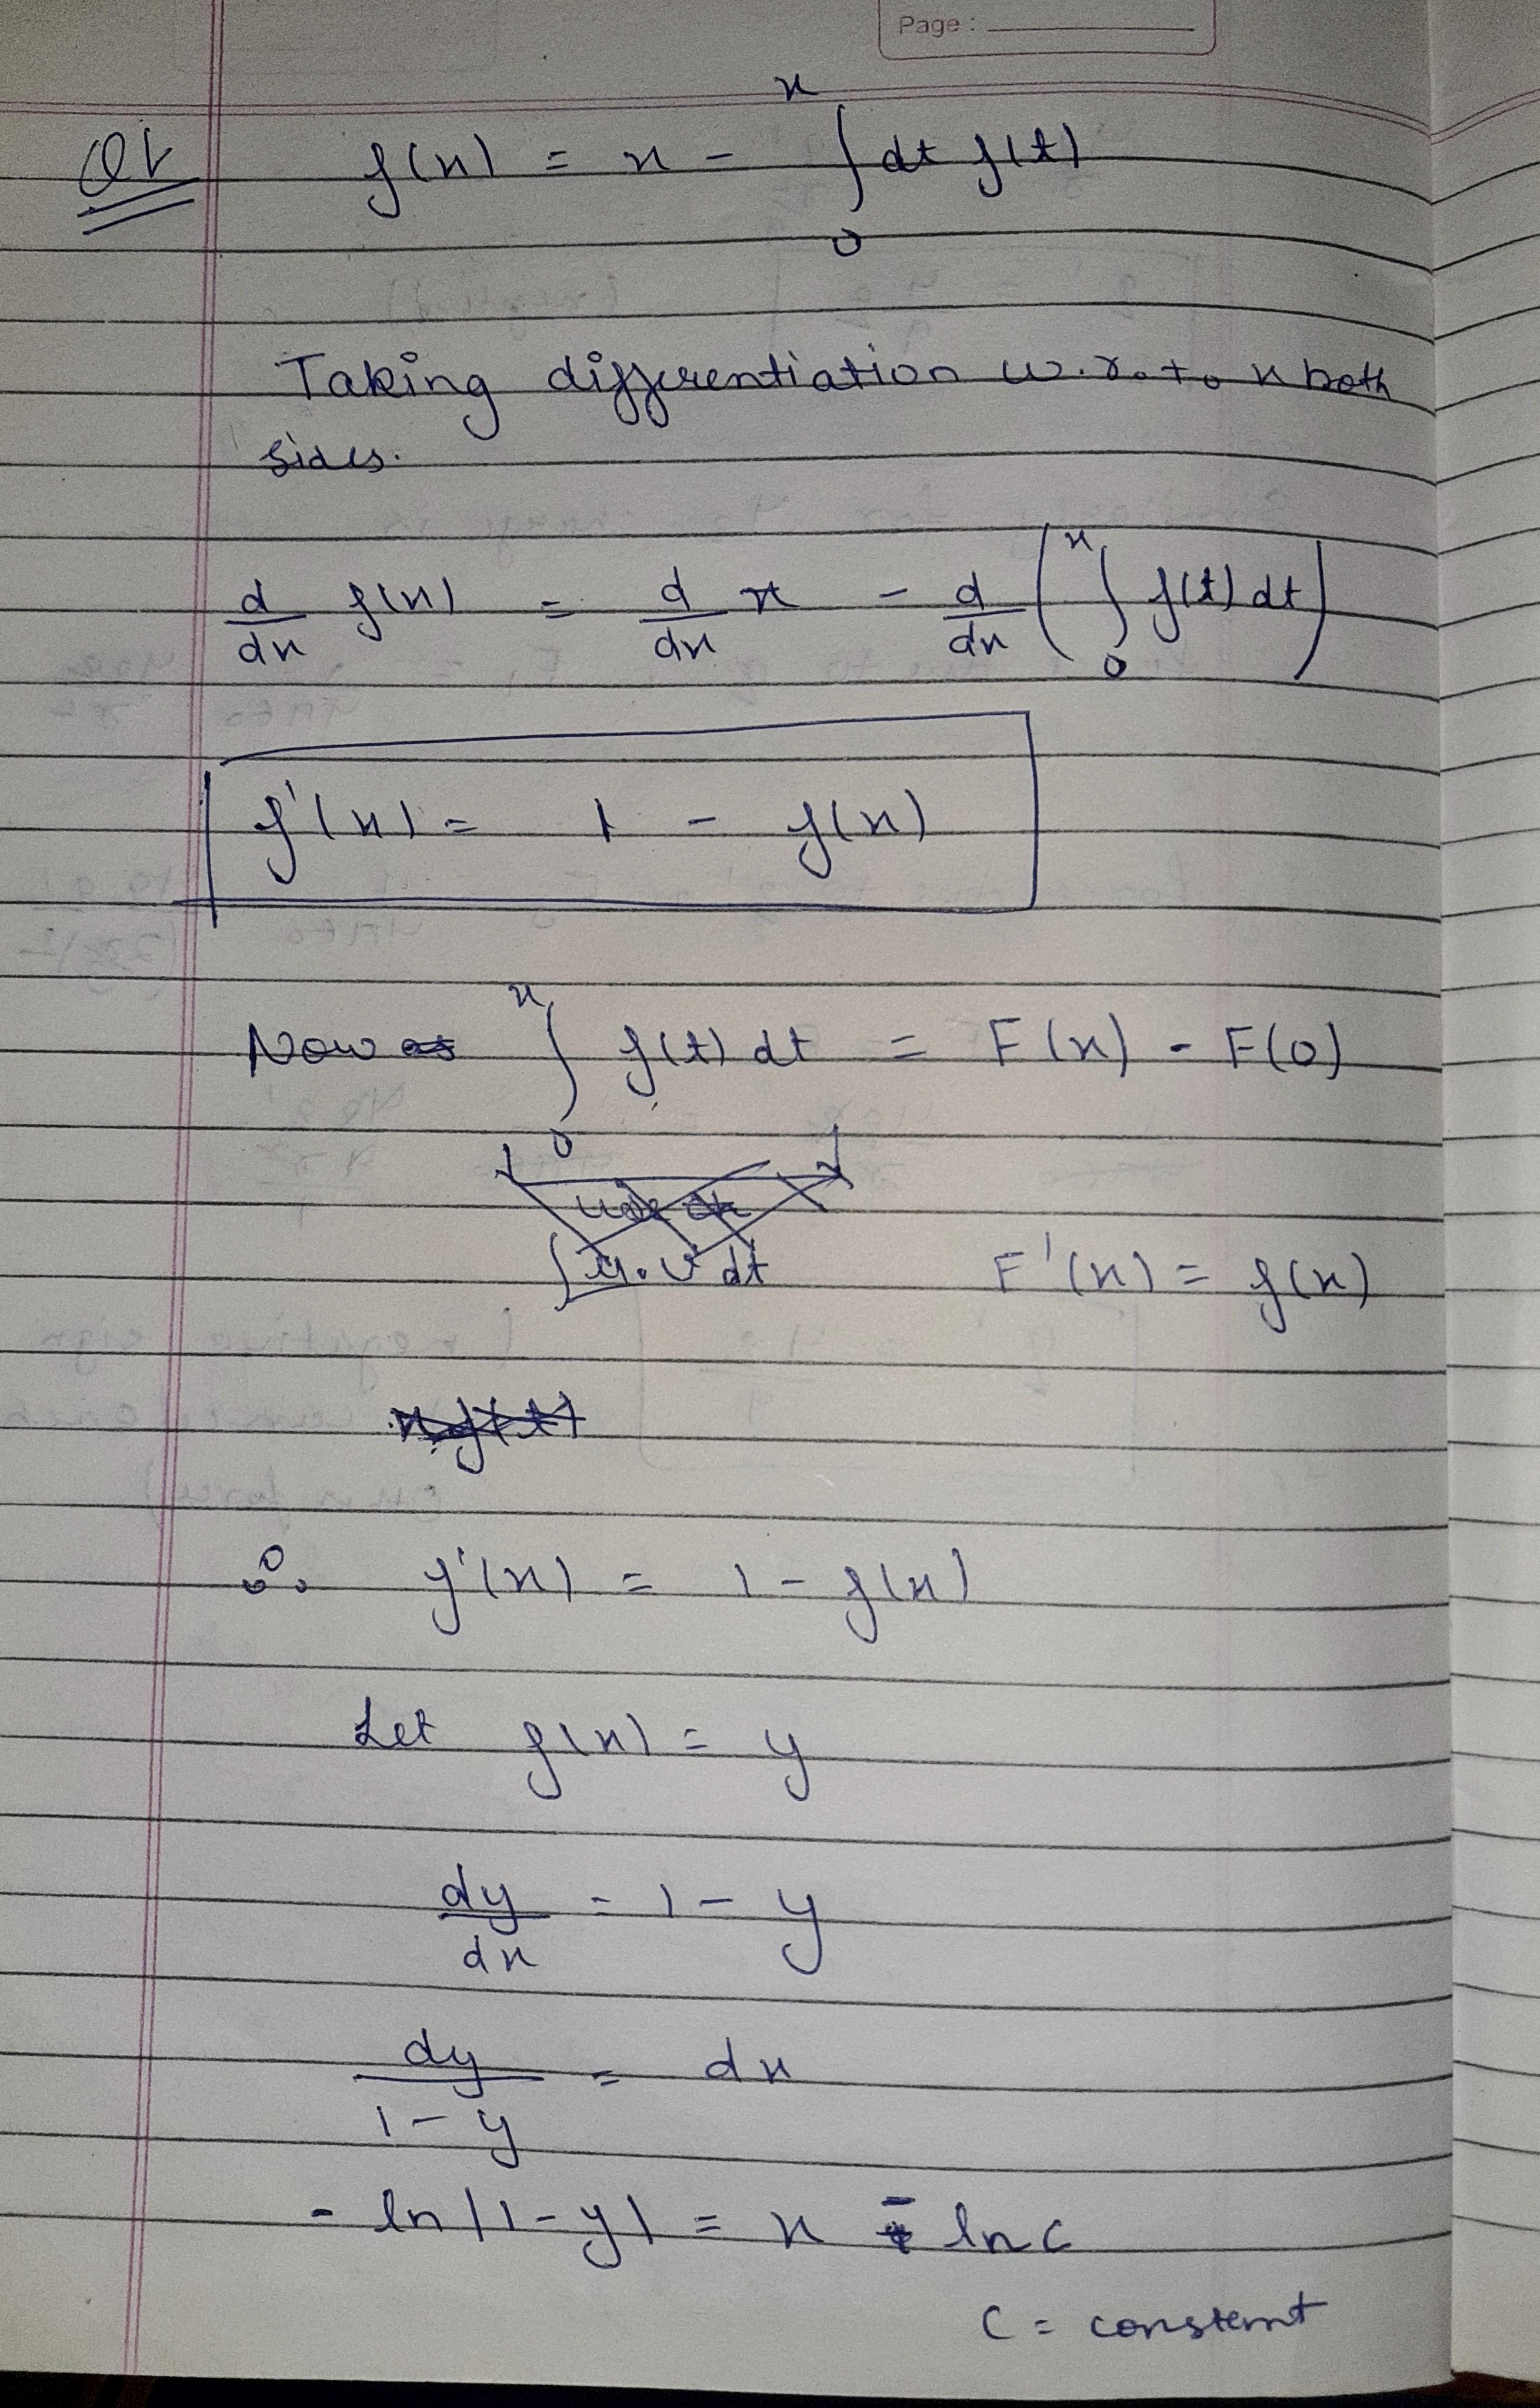 Page :
Q1 f(x) = x - ∫₀ˣ dt f(t)
Taking differentiation w.r.t. x both
sides.
d/dx f(x) = d/dx x - d/dx (∫₀ˣ f(t) dt)
f'(x) = 1 - f(x)
Now ∫₀ˣ f(t) dt = F(x) - F(0)
∫u.v dt F'(x) = f(x)
∴ f'(x) = 1 - f(x)
Let f(x) = y
dy/dx = 1 - y
dy/(1 - y) = dx
- ln|1 - y| = x - ln c
C = constant